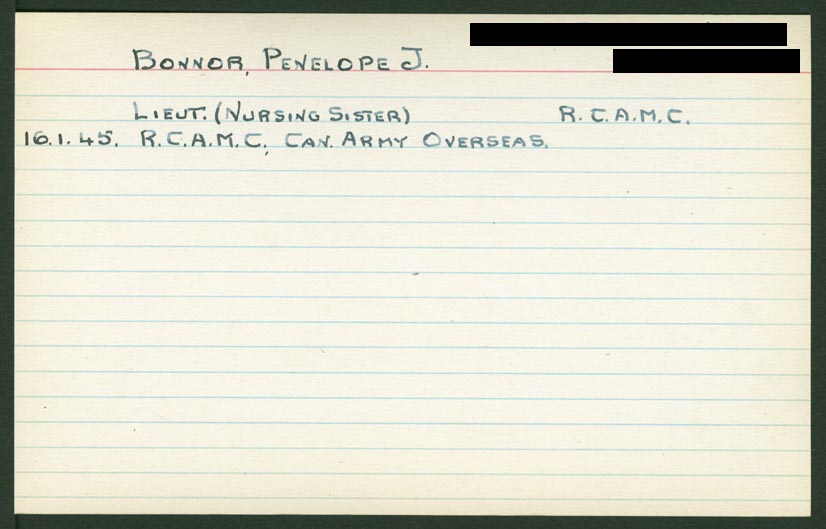 BONNOR, PENELOPE J.
LIEUT. (NURSING SISTER) R.C.A.M.C.
16.1.45. R.C.A.M.C. CAN. ARMY OVERSEAS.